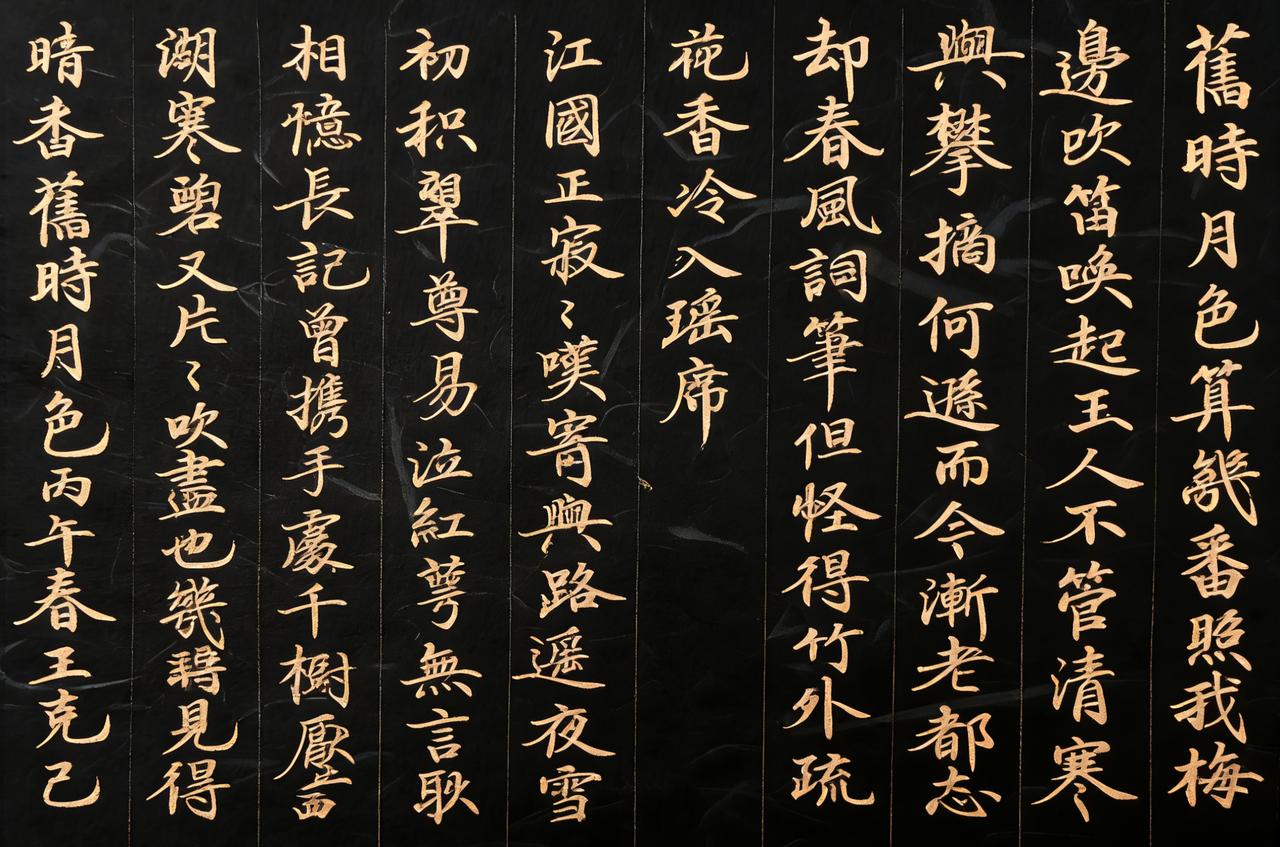 舊時月色算幾番照我梅
邊吹笛喚起玉人不管清寒
與攀摘何遜而今漸老都忘
却春風詞筆但怪得竹外疏
花香冷入瑶席
江國正寂〻嘆寄與路遥夜雪
初积翠尊易泣紅萼無言耿
相憶長記曾携手處千樹壓西
湖寒碧又片〻吹盡也幾時見得
晴香舊時月色丙午春王克己